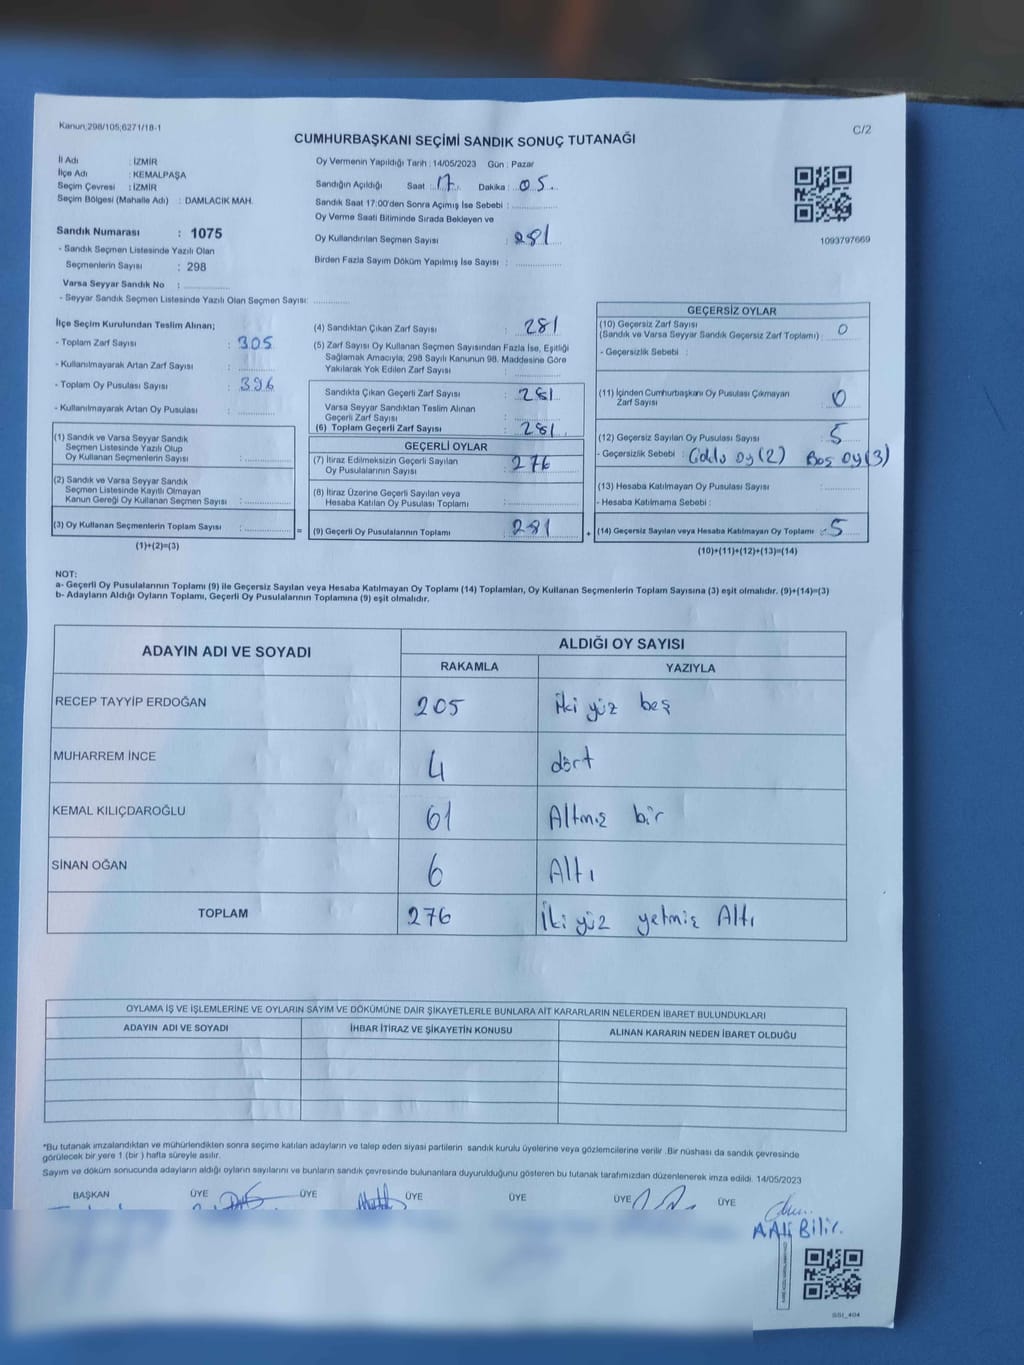 Kanun;298/105;6271/18-1
C/2
CUMHURBAŞKANI SEÇİMİ SANDIK SONUÇ TUTANAĞI
İl Adı : İZMİR
İlçe Adı : KEMALPAŞA
Seçim Çevresi : İZMİR
Seçim Bölgesi (Mahalle Adı) : DAMLACIK MAH.
Sandık Numarası : 1075
- Sandık Seçmen Listesinde Yazılı Olan
Seçmenlerin Sayısı : 298
Varsa Seyyar Sandık No :
- Seyyar Sandık Seçmen Listesinde Yazılı Olan Seçmen Sayısı:
Oy Vermenin Yapıldığı Tarih : 14/05/2023 Gün : Pazar
Sandığın Açıldığı Saat : 17 Dakika : 05
Sandık Saat 17:00'den Sonra Açımış İse Sebebi :
Oy Verme Saati Bitiminde Sırada Bekleyen ve
Oy Kullandırılan Seçmen Sayısı : 281
Birden Fazla Sayım Döküm Yapılmış İse Sayısı :
1093797669
İlçe Seçim Kurulundan Teslim Alınan;
- Toplam Zarf Sayısı : 305
- Kullanılmayarak Artan Zarf Sayısı :
- Toplam Oy Pusulası Sayısı : 396
- Kullanılmayarak Artan Oy Pusulası :
(1) Sandık ve Varsa Seyyar Sandık
Seçmen Listesinde Yazılı Olup
Oy Kullanan Seçmenlerin Sayısı :
(2) Sandık ve Varsa Seyyar Sandık
Seçmen Listesinde Kayıtlı Olmayan
Kanun Gereği Oy Kullanan Seçmen Sayısı :
(3) Oy Kullanan Seçmenlerin Toplam Sayısı :
(1)+(2)=(3)
(4) Sandıktan Çıkan Zarf Sayısı : 281
(5) Zarf Sayısı Oy Kullanan Seçmen Sayısından Fazla İse, Eşitliği
Sağlamak Amacıyla; 298 Sayılı Kanunun 98. Maddesine Göre
Yakılarak Yok Edilen Zarf Sayısı :
Sandıkta Çıkan Geçerli Zarf Sayısı : 281
Varsa Seyyar Sandıktan Teslim Alınan
Geçerli Zarf Sayısı :
(6) Toplam Geçerli Zarf Sayısı : 281
GEÇERLİ OYLAR
(7) İtiraz Edilmeksizin Geçerli Sayılan
Oy Pusulalarının Sayısı : 276
(8) İtiraz Üzerine Geçerli Sayılan veya
Hesaba Katılan Oy Pusulası Toplamı :
= (9) Geçerli Oy Pusulalarının Toplamı : 281
GEÇERSİZ OYLAR
(10) Geçersiz Zarf Sayısı
(Sandık ve Varsa Seyyar Sandık Geçersiz Zarf Toplamı) : 0
- Geçersizlik Sebebi :
(11) İçinden Cumhurbaşkanı Oy Pusulası Çıkmayan
Zarf Sayısı : 0
(12) Geçersiz Sayılan Oy Pusulası Sayısı : 5
- Geçersizlik Sebebi : Çoklu oy (2) Boş oy (3)
(13) Hesaba Katılmayan Oy Pusulası Sayısı :
- Hesaba Katılmama Sebebi :
+ (14) Geçersiz Sayılan veya Hesaba Katılmayan Oy Toplamı : 5
(10)+(11)+(12)+(13)=(14)
NOT:
a- Geçerli Oy Pusulalarının Toplamı (9) ile Geçersiz Sayılan veya Hesaba Katılmayan Oy Toplamı (14) Toplamları, Oy Kullanan Seçmenlerin Toplam Sayısına (3) eşit olmalıdır. (9)+(14)=(3)
b- Adayların Aldığı Oyların Toplamı, Geçerli Oy Pusulalarının Toplamına (9) eşit olmalıdır.
ADAYIN ADI VE SOYADI
ALDIĞI OY SAYISI
RAKAMLA YAZIYLA
RECEP TAYYİP ERDOĞAN 205 İki yüz beş
MUHARREM İNCE 4 dört
KEMAL KILIÇDAROĞLU 61 Altmış bir
SİNAN OĞAN 6 Altı
TOPLAM 276 İki yüz yetmiş Altı
OYLAMA İŞ VE İŞLEMLERİNE VE OYLARIN SAYIM VE DÖKÜMÜNE DAİR ŞİKAYETLERLE BUNLARA AİT KARARLARIN NELERDEN İBARET BULUNDUKLARI
ADAYIN ADI VE SOYADI İHBAR İTİRAZ VE ŞİKAYETİN KONUSU ALINAN KARARIN NEDEN İBARET OLDUĞU
*Bu tutanak imzalandıktan ve mühürlendikten sonra seçime katılan adayların ve talep eden siyasi partilerin sandık kurulu üyelerine veya gözlemcilerine verilir .Bir nüshası da sandık çevresinde
görülecek bir yere 1 (bir ) hafta süreyle asılır.
Sayım ve döküm sonucunda adayların aldığı oyların sayılarını ve bunların sandık çevresinde bulunanlara duyurulduğunu gösteren bu tutanak tarafımızdan düzenlenerek imza edildi. 14/05/2023
BAŞKAN ÜYE ÜYE ÜYE ÜYE ÜYE ÜYE
AAli Bilir.
SSI_404